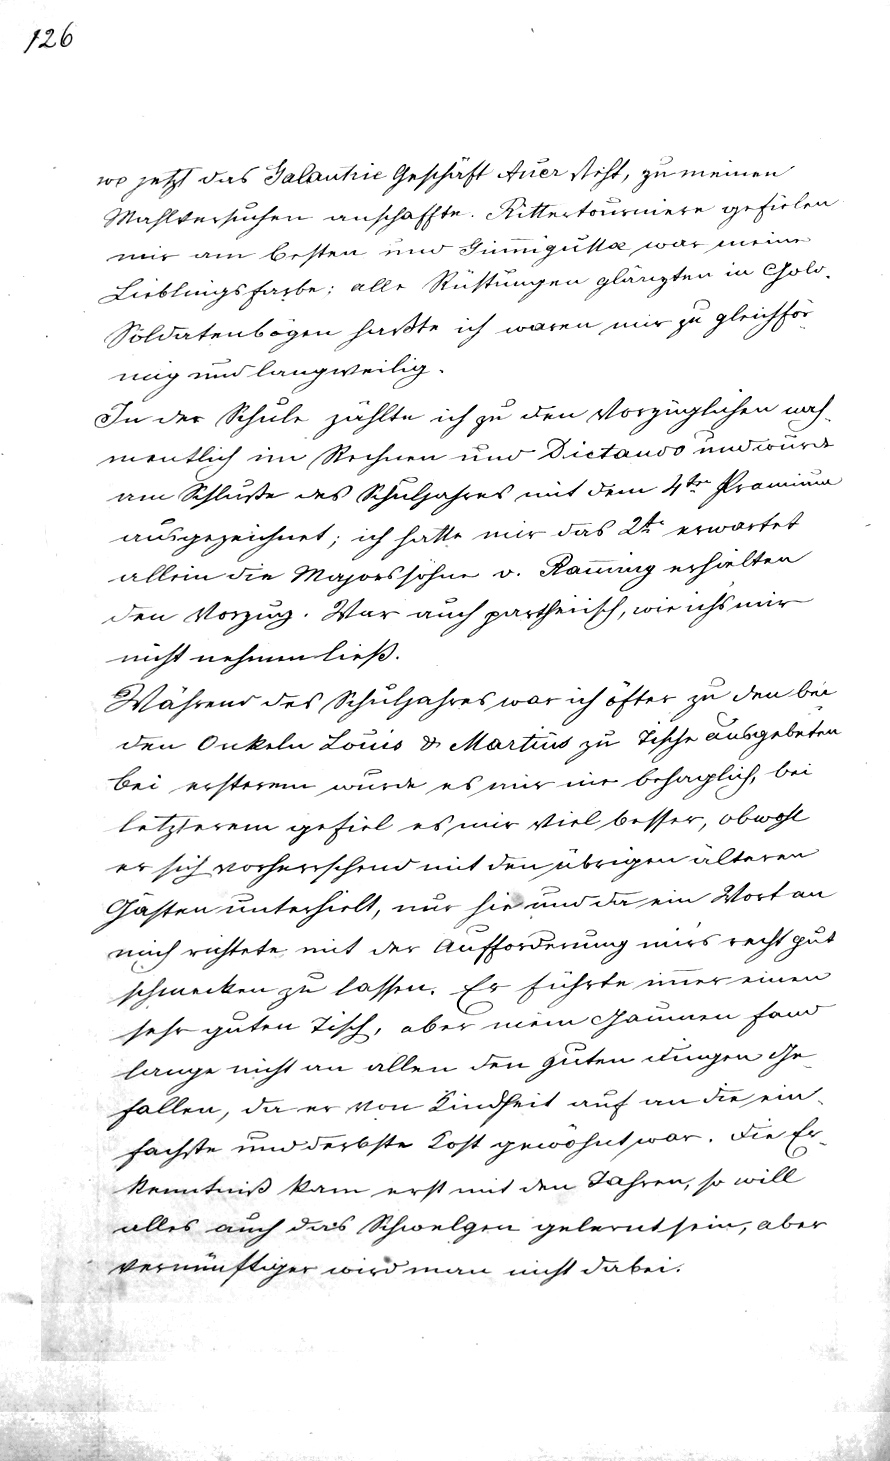 126
wo jetzt das Galantrie Geschäft Auer steht, zu meinen
Mahlversuchen anschaffte. Rittertourniere gefielen
mir am besten und Gum̅igutta war meine
Lieblingsfarbe; alle Rüstungen glänzten in Gold.
Soldatenbögen haßte ich waren mir zu gleichför-
mig und langweilig.
In der Schule zählte ich zu den Vorzüglichen nah-
mentlich im Rechnen und Dictando und wurde
am Schluße des Schuljahres mit dem 4ten Pramium
ausgezeichnet; ich hatte mir das 2te erwartet
allein die Majorssöhne v. Ram̅ing erhielten
den Vorzug. War auch partheiisch, wie ich's mir
nicht nehmen ließ.
Während des Schuljahres war ich öfter zu den bei
den Onkeln Louis & Martius zu Tische ausgebeten
bei ersterem wurde es mir nie behaglich, bei
letzterem gefiel es mir viel besser, obwohl
er sich vorherrschend mit den übrigen älteren
Gästen unterhielt, nur hie und da ein Wort an
mich richtete mit der Aufforderung mir's recht gut
schmecken zu lassen. Er führte im̅er einen
sehr guten Tisch, aber mein Gaumen fand
lange nicht an allen den guten Dingen Ge-
fallen, da er von Kindheit auf an die ein-
fachste und derbste Kost gewöhnt war. Die Er-
kenntniß kam erst mit den Jahren, so will
alles auch das Schwelgen gelernt sein, aber
vernünftiger wird man nicht dabei.